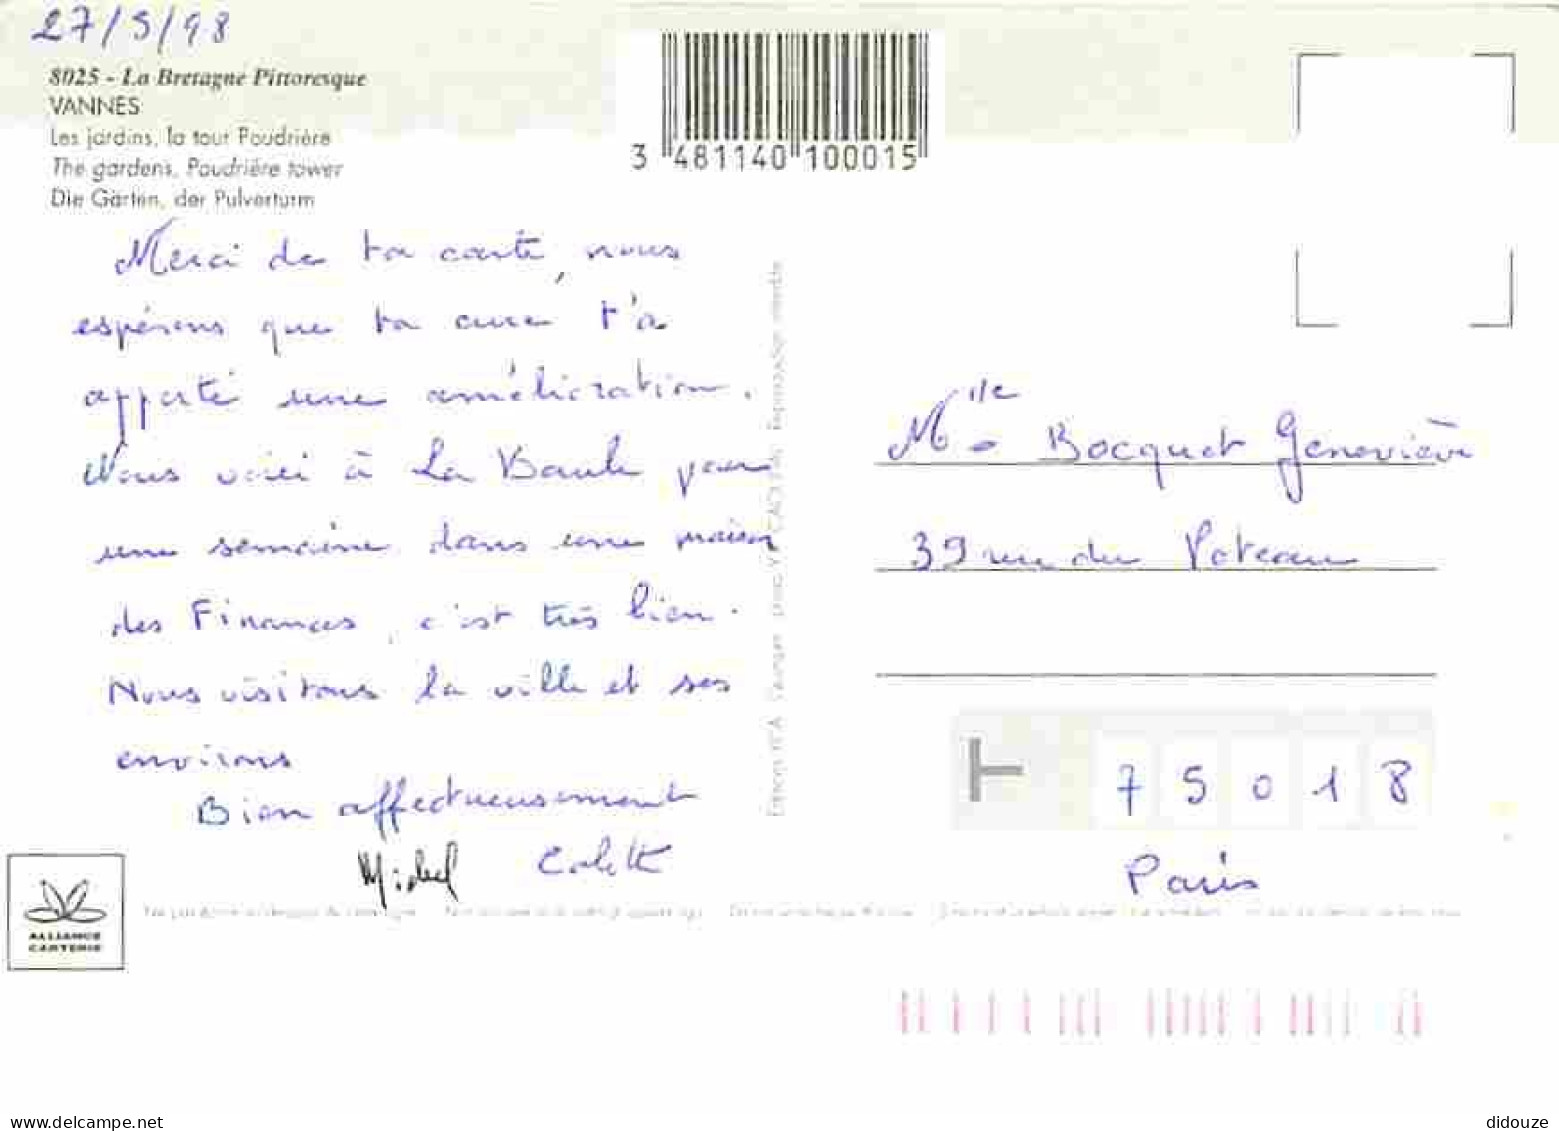 27/5/98
8025 - La Bretagne Pittoresque
VANNES
Les jardins, la tour Poudrière
The gardens, Poudrière tower
Die Gärten, der Pulverturm
3 481140 100015
Merci de ta carte, nous
espérons que ta cure t'a
apporté une amélioration.
Nous voici à La Baule pour
une semaine dans une maison
des Finances, c'est très bien.
Nous visitons la ville et ses
environs
Bien affectueusement
Michel Colette
Mlle Bocquet Geneviève
39 rue du Poteau
75018
Paris
ALLIANCE
CARTERIE
www.delcampe.net
didouze